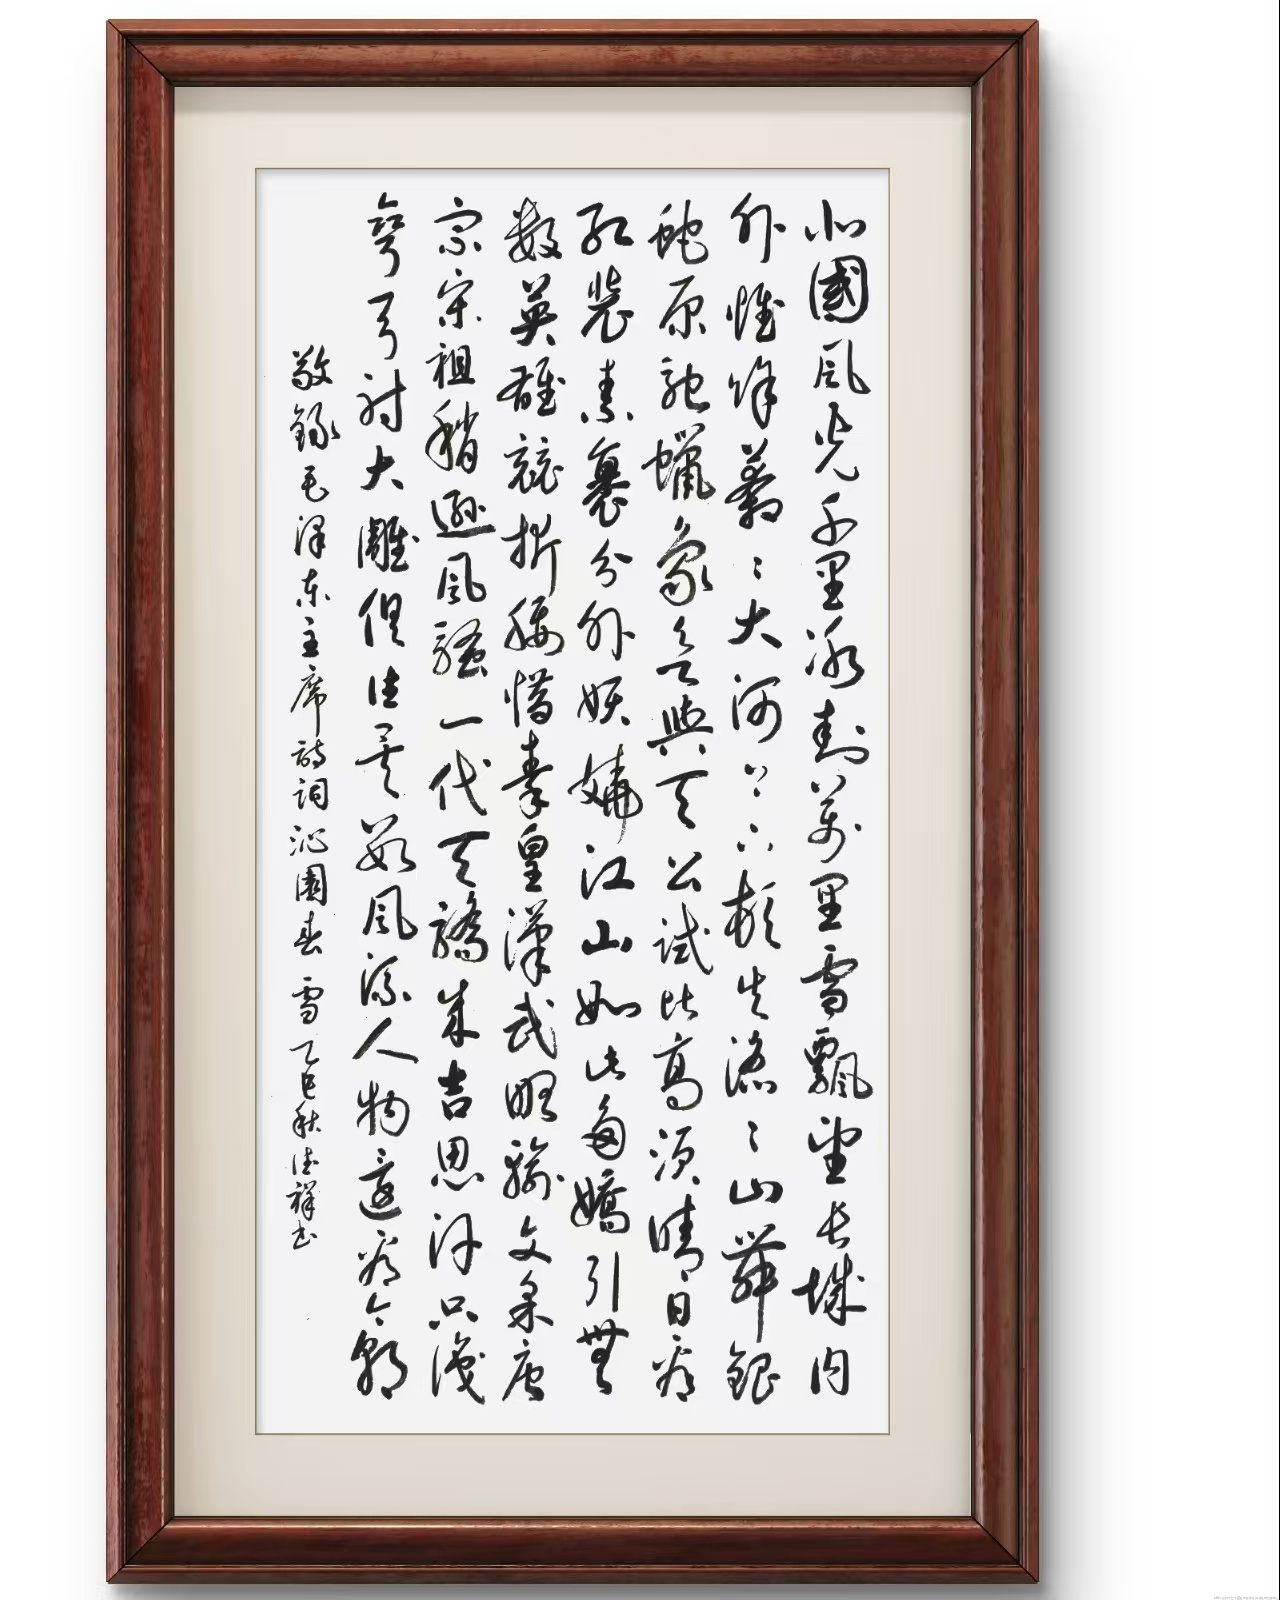 北國風光千里冰封萬里雪飄望長城内
外惟餘莽〻大河上下頓失滔〻山舞銀
蛇原馳蠟象欲與天公試比高須晴日看
紅裝素裹分外妖嬈江山如此多嬌引無
数英雄競折腰惜秦皇漢武略輸文采唐
宗宋祖稍遜風騷一代天驕成吉思汗只識
彎弓射大雕俱往矣數風流人物還看今朝
敬錄毛泽东主席詩詞沁園春 雪 乙巳秋祥书